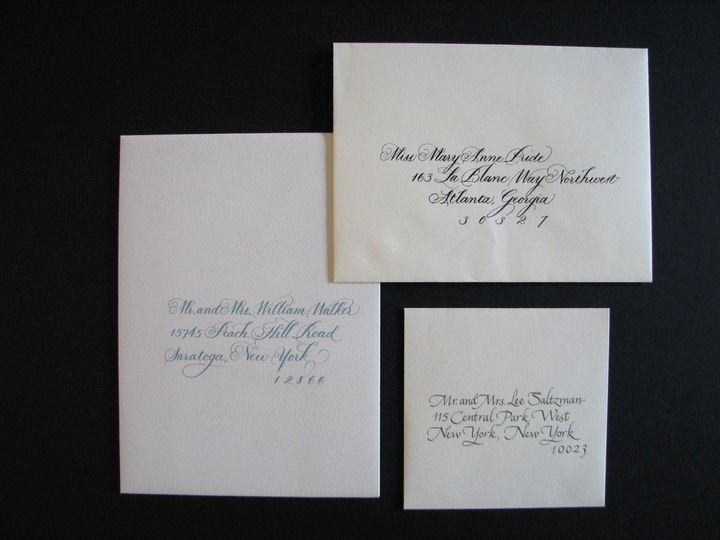 Miss Mary Anne Pride
163 La Blanc Way Northwest
Atlanta, Georgia
30327
Mr. and Mrs. William Walker
15745 Peach Hill Road
Saratoga, New York
12866
Mr. and Mrs. Lee Saltzman
115 Central Park West
New York, New York
10023